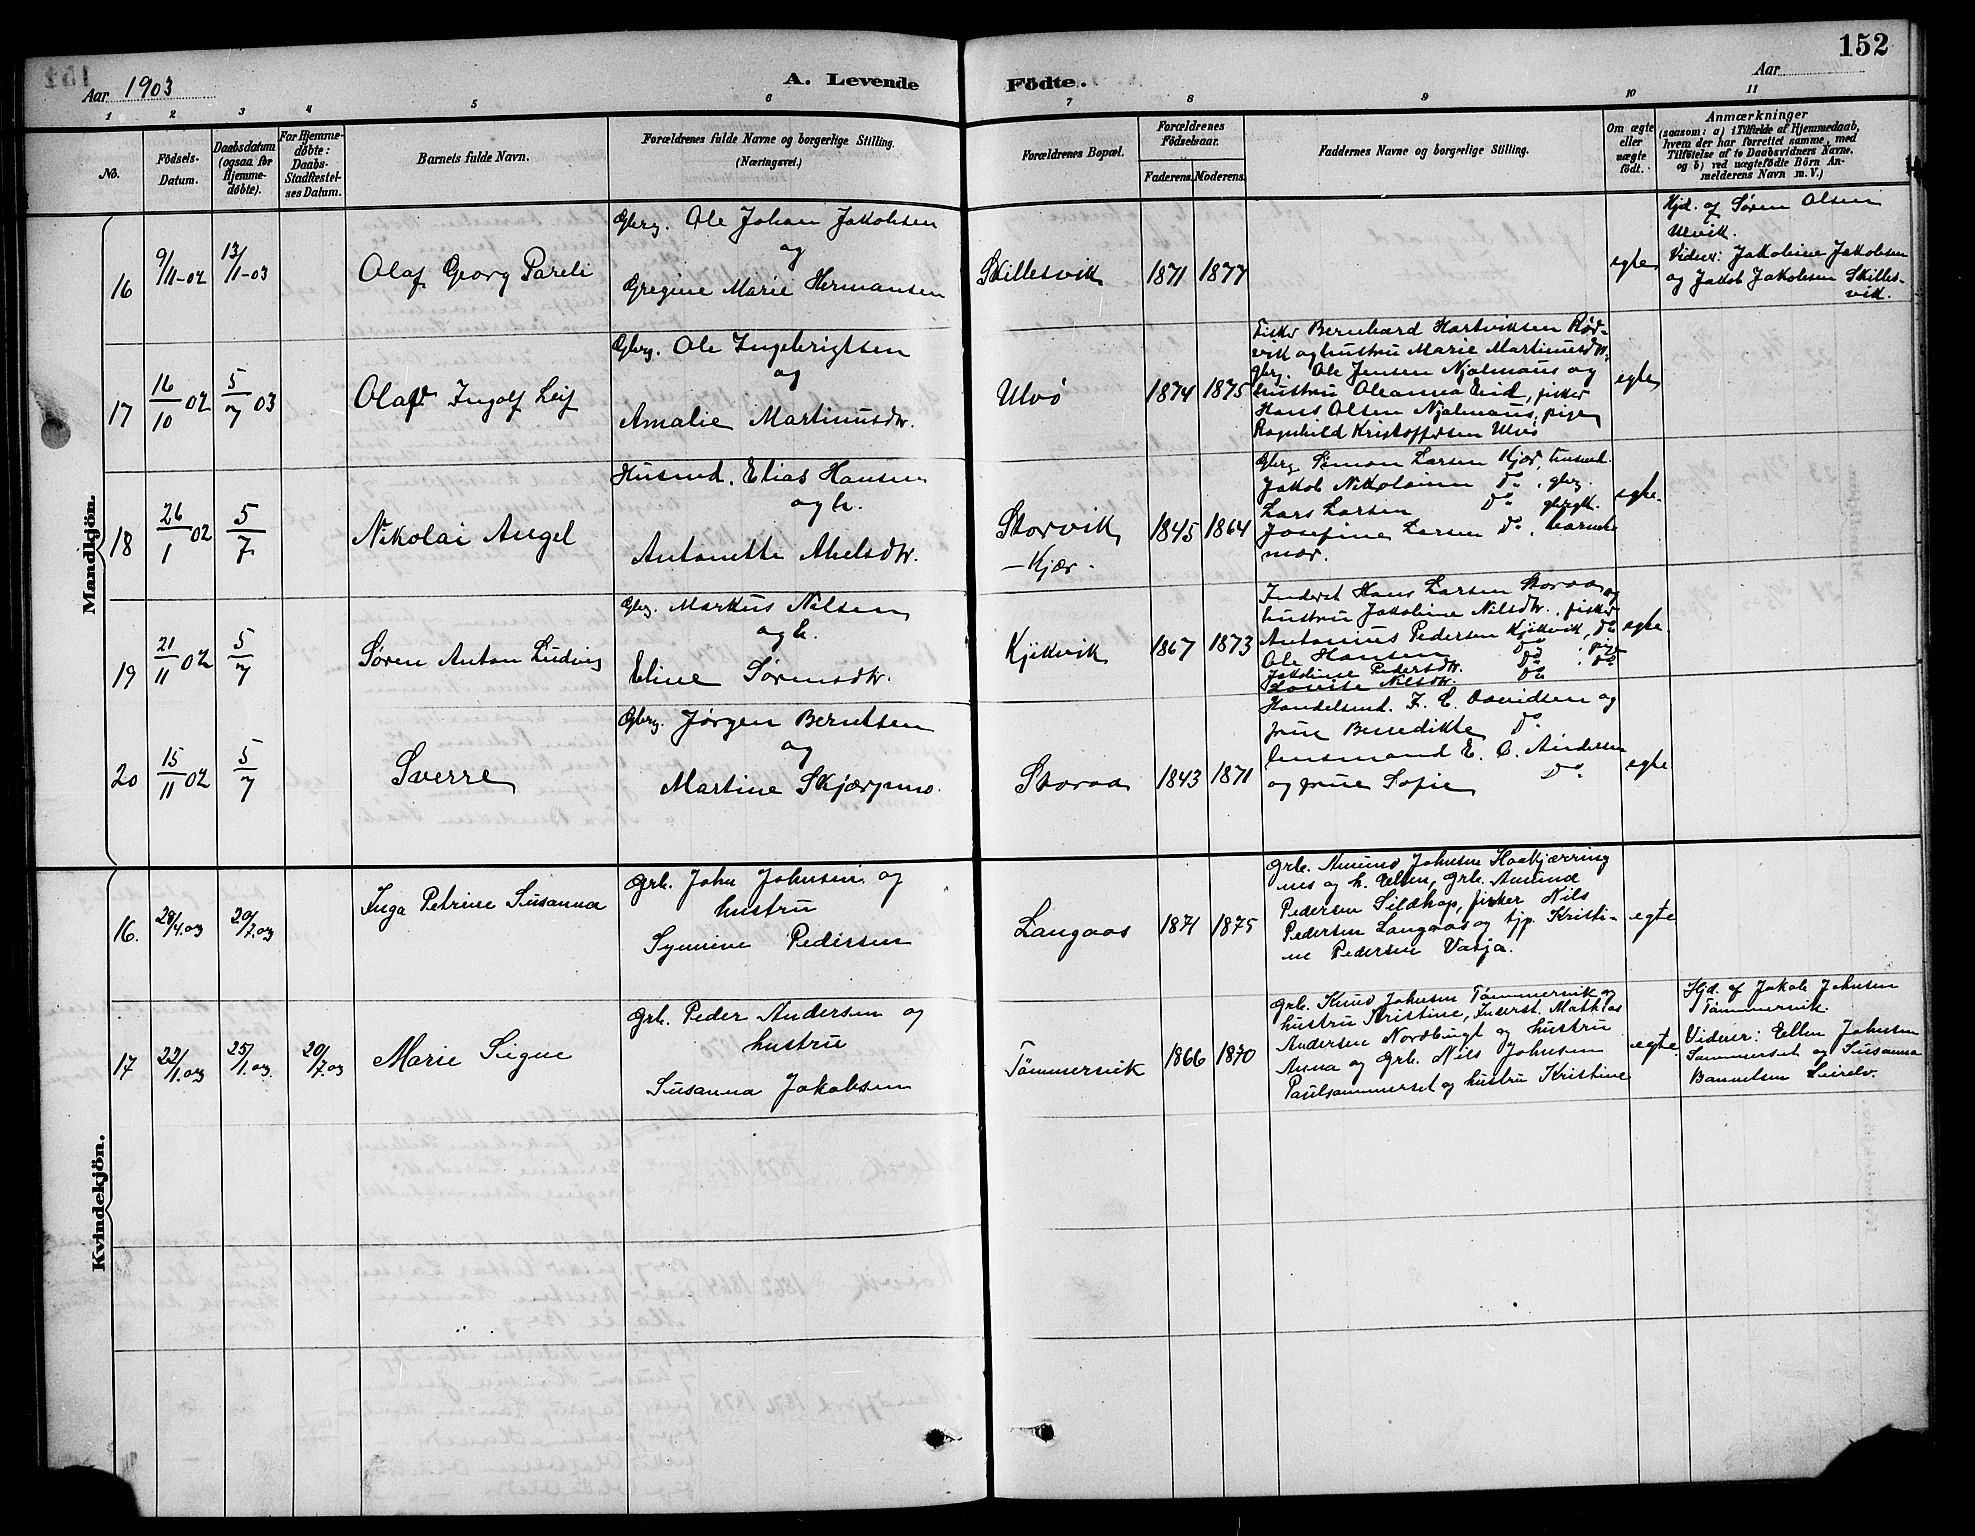 152
Aar 1903
A. Levende Födte.
Aar
1 2 3 4 5 6 7 8 9 10 11
No.
Födsels-
Datum.
Daabsdatum
(ogsaa for
Hjemme-
døbte).
For Hjemme-
døbte:
Daabs-
Stadfæstel-
ses Datum.
Barnets fulde Navn.
Forældrenes fulde Navne og borgerlige Stilling.
(Næringsvei.)
Forældrenes Bopæl.
Forældrenes
Födselsaar.
Faderens. Moderens.
Faddernes Navne og borgerlige Stilling.
Om ægte
eller
uægte
födt.
Anmærkninger
(saasom: a) i Tilfælde af Hjemmedaab,
hvem der har forrettet samme, med
Tilföielse af to Daabsvidners Navne.
og b) ved uægtefödte Börn An-
melderens Navn m. V.)
Mandkjön.
16
9/11-02
13/1-03
Olaf Georg Pareli
Gbrg. Ole Johan Jakobsen
og
Gregine Marie Hermansen
Skillesvik
1871 1877
egte
Hjd. af Søren Olsen
Ulvik.
Vidner: Jakobine Jakobsen
og Jakob Jakobsen Skilles-
vik.
17
16/10 02
5/7 03
Olaf Ingolf Leif
Gbrg. Ole Ingebrigtsen
og
Amalie Martinusdtr.
Ulvö
1874 1875
Fisker Bernhard Hartviksen Rød-
vik og hustru Marie Martinusdtr.
gbrg. Ole Jensen Njalmans og
hustru Oleanna Eird, fisker
Hans Olsen Njalmans, pige
Ragnhild Kristoffersen Ulvö
egte
18
26/1 02
5/7
Nikolai Angel
Husmd. Elias Hansen
og h.
Antonette Abelsdtr.
Storvik
- Kjær -
1845 1864
Gbrg. Simon Larsen Kjær, husmd.
Jakob Nikolaisen do, gbrg.
Lars Larsen do
Josefine Larsen do, barnets
mor.
egte.
19
21/11 02
5/7
Søren Anton Ludvig
Gbrg. Markus Nilsen
og h.
Eline Sørensdtr.
Kjikvik
1867 1873
Inderst Hans Larsen Storaa og
hustru Jakobine Nilsdtr., fisker
Antonius Pedersen Kjikvik, do
Ole Hansen do, pige
Jakobine Pedersdtr. do, do
Lovise Nilsdtr. do
egte.
20
15/11 02
5/7
Sverre
Gbrg. Jørgen Berntsen
og
Martine Skjærpmo.
Storaa
1843 1871
Handelsmd. F. E. Davidsen og
frue Benedikte do
lensmand E. C. Andersen
og frue Sofie do
egte
Kvindekjön.
16.
29/4.03
20/7.03
Inga Petrine Susanna
Grb. John Johnsen og
hustru
Symine Pedersen
Langaas
1871 1875
Grb. Amund Johnsen Haakjærring
nes og h. Ellen, Grb. Amund
Pedersen Sildhop, fisker Nils
Pedersen Langaas og tjp. Kristi-
ne Pedersen Vasja.
egte
17
22/1.03
25/1.03
20/7.03
Marie Signe
Grb. Peder Andersen og
hustru
Susanna Jakobsen
Tömmervik
1866 1870
Grb. Knud Johnsen Tömmervik og
hustru Kristine, Inderst. Mathias
Andersen Nordbugt og hustru
Anna og Grb. Nils Johnsen
Paulsommerset og hustru Kristine
egte.
Hjd. af Jakob Johnsen
Tömmervik.
Vidner: Ellen Johnsen
Sommerset og Susanna
Leirelv.